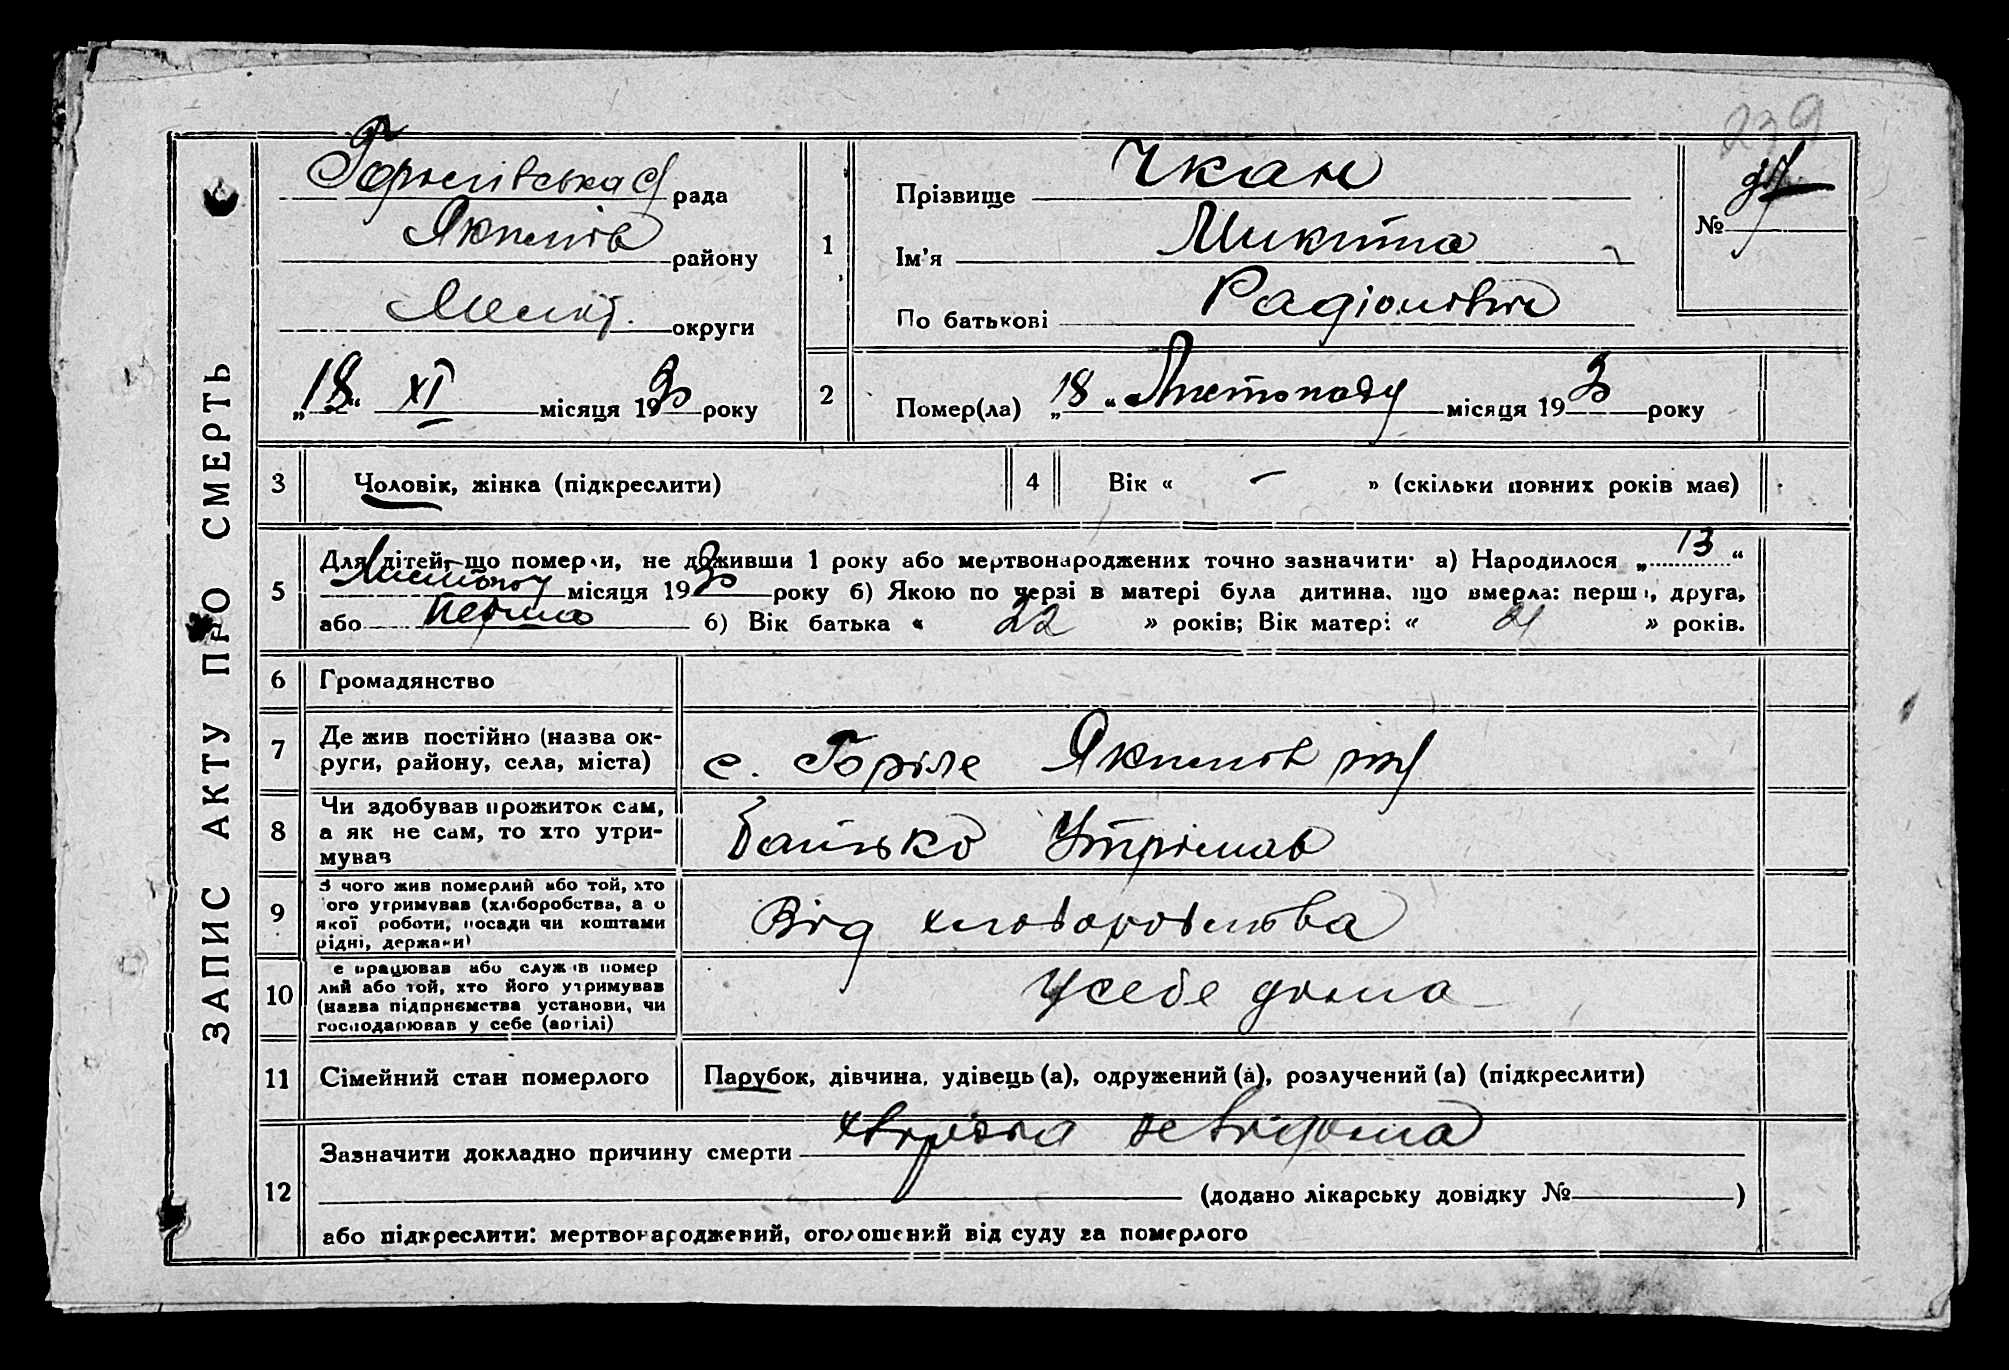 239
ЗАПИС АКТУ ПРО СМЕРТЬ
Горилівська с/рада
Якимів району
Меліт. округи
„18“ XI місяця 1930 року
1
Прізвище Чкан
Ім'я Микита
По батькові Радіонович
№
2
Помер(ла) „18“ Листопаду місяця 1930 року
3 Чоловік, жінка (підкреслити)
4 Вік « – » (скільки повних років має)
5 Для дітей, що померли, не доживши 1 року або мертвонароджених точно зазначити: а) Народилося „13“
Листопаду місяця 1930 року б) Якою по черзі в матері була дитина, що вмерла: перша, друга,
або перша б) Вік батька « 22 » років; Вік матері « 21 » років.
6 Громадянство
7 Де жив постійно (назва ок-
руги, району, села, міста)
с. Горіле Якимів
8 Чи здобував прожиток сам,
а як не сам, то хто утри-
мував
батько Утрімав
9 З чого жив померлий або той, хто
ого утримував (хліборобства, а о
якої роботи, посади чи коштами
рідні, держави)
Від хліборобства
10 е працював або служив помер
лий або той, хто його утримував
(назва підприємства установи, чи
господарював у себе (артілі)
У себе дома
11 Сімейний стан померлого
Парубок, дівчина, удівець (а), одружений (а), розлучений (а) (підкреслити)
12 Зазначити докладно причину смерти хвороба невідома
(додано лікарську довідку № )
або підкреслити: мертвонароджений, оголошений від суду за померлого